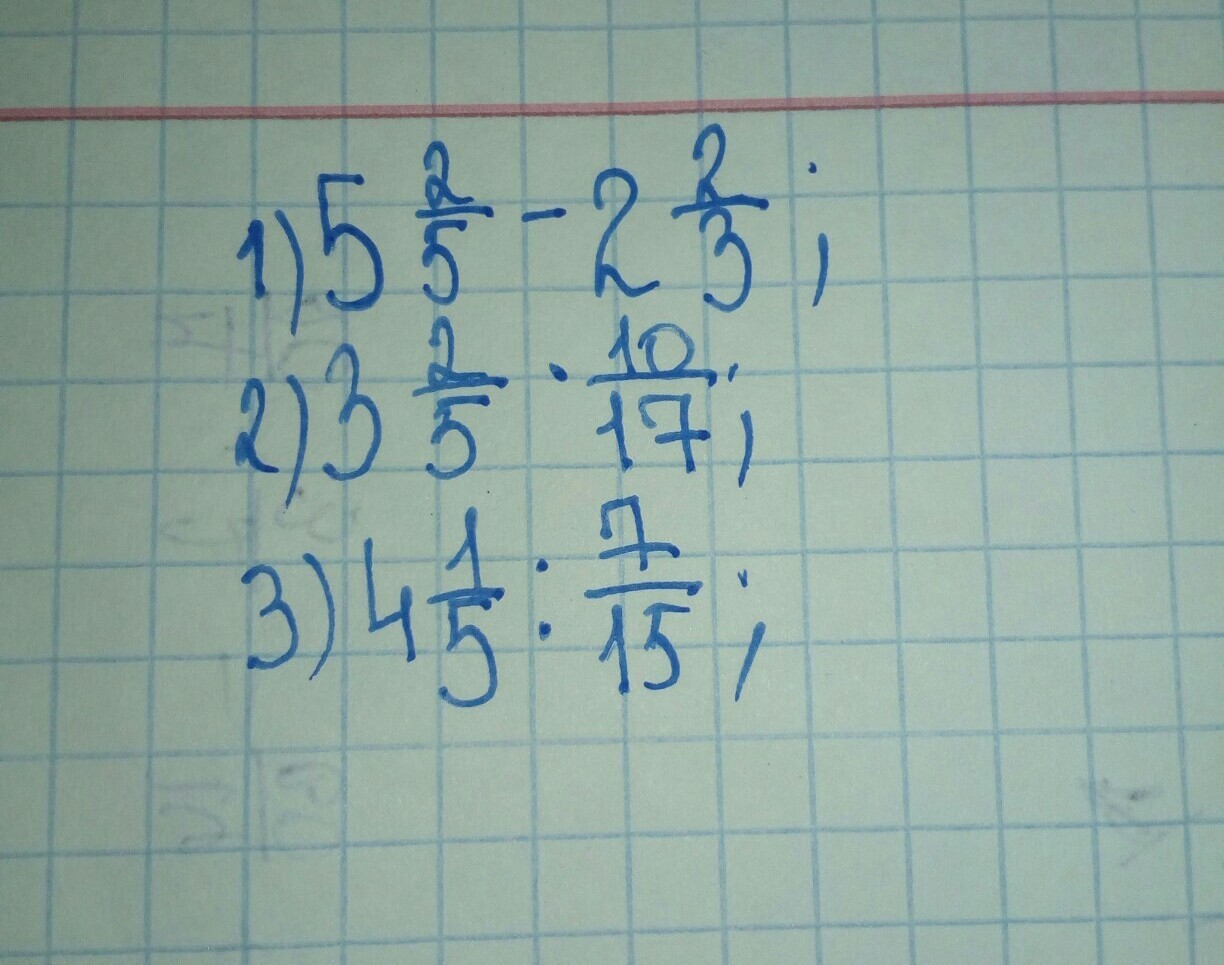 1) 5 2/5 - 2 2/3;
2) 3 2/5 · 10/17;
3) 4 1/5 : 7/15;